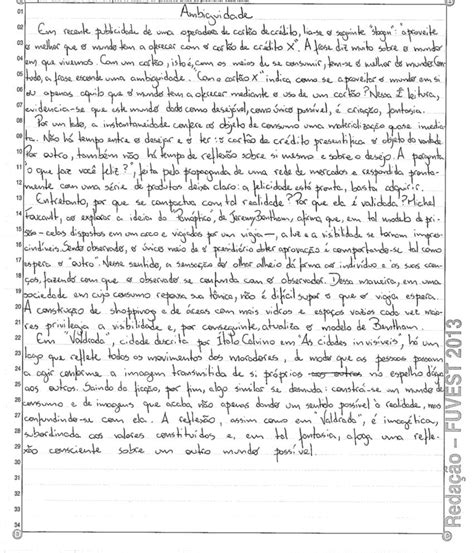 Ambiguidade
Em recente publicidade de uma operadora de cartão de crédito, lia-se o seguinte "slogan": "aproveite
o melhor que o mundo tem a oferecer com o cartão de crédito X". A frase diz muito sobre o mundo
em que vivemos. Com um cartão, isto é, com os meios de se consumir, tem-se o melhor do mundo. Con-
tudo, a frase esconde uma ambiguidade. "Com o cartão X" indica como se aproveitar o mundo em si
ou apenas aquilo que o mundo tem a oferecer mediante o uso de um cartão? Nessa 2ª leitura,
evidencia-se que este mundo dado como desejável, como único possível, é criação, fantasia.
Por um lado, a instantaneidade confere ao objeto de consumo uma materialização quase imedia-
ta. Não há tempo entre o desejar e o ter: o cartão de crédito presentifica o objeto da vontade.
Por outro, também não há tempo de reflexão sobre si mesmo e sobre o desejo. A pergunta
"o que faz você feliz?", feita pela propaganda de uma rede de mercados e respondida pronta-
mente com uma série de produtos deixa claro: a felicidade está pronta, basta adquirir.
Entretanto, por que se compactua com tal realidade? Por que ela é validada? Michel
Foucault, ao explorar a ideia do "Panóptico", de Jeremy Bentham, afirma que, em tal modelo de pri-
são - celas dispostas em um arco e vigiadas por um vigia -, a luz e a visibilidade se tornam impres-
cindíveis. Sendo observado, o único meio de o penitenciário obter aprovação é comportando-se tal como
espera o "outro". Nesse sentido, a sensação do olhar alheio dá forma ao indivíduo e as suas cren-
ças, fazendo com que o observado se confunda com o observador. Dessa maneira, em uma
sociedade em cujo consumo repousa sua tônica, não é difícil supor o que o vigia espera.
A construção de shoppings e de áreas com mais vidros e espaços vazios cada vez mai-
ores privilegia a visibilidade e, por conseguinte, atualiza o modelo de Bentham.
Em "Valdrada", cidade descrita por Ítalo Calvino em "As cidades invisíveis", há um
lago que reflete todos os movimentos dos moradores, de modo que as pessoas passam
a agir conforme a imagem transmitida de si próprios no espelho d'água
aos outros. Saindo da ficção, por fim, algo similar se desnuda: constrói-se um mundo de
consumo e de imagens que acaba não apenas dando um sentido possível à realidade, mas
confundindo-se com ela. A reflexão, assim como em "Valdrada", é imagética,
subordinada aos valores constituídos e, em tal fantasia, afoga uma refle-
xão consciente sobre um outro mundo possível.
Redação – FUVEST 2013